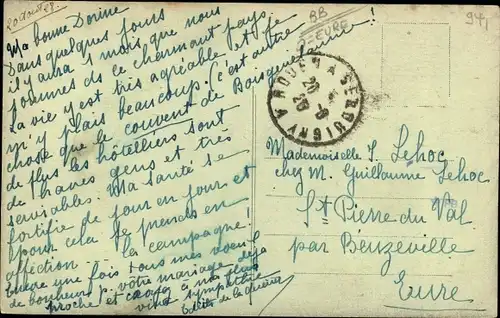 20 août 28
Ma bonne Dorine
Dans quelques jours
il y aura 1 mois que nous
sommes ds ce charmant pays.
La vie y est très agréable et je
m'y plais beaucoup (c'est autre
chose que le couvent de Boisguillaume!
de plus les hôteliers sont
de braves gens et très
serviables. Ma santé se
fortifie de jour en jour et
pour cela je prends en
affection --- la campagne!
Encore une fois tous mes vœux
de bonheur p. votre mariage déjà
proche et croyez à ma plus
vive sympathie
BB
EURE
94
ROUEN A SERQUIGNY
20 -8
28
Mademoiselle S. Lehoc
chez M. Guillaume Lehoc
St Pierre du Val
par Beuzeville
Eure